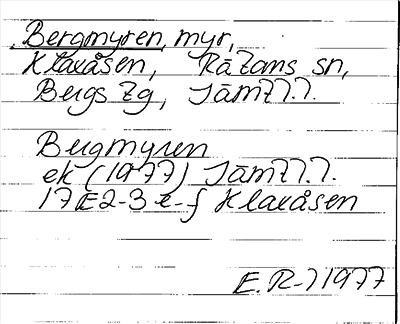 Bergmyren, myr,
Klaxåsen, Rätans sn,
Bergs tg, Jämtl.l.
Bergmyren
ek (1977) Jämtl.l.
17E2-3e-f Klaxåsen
E.R-l 1977